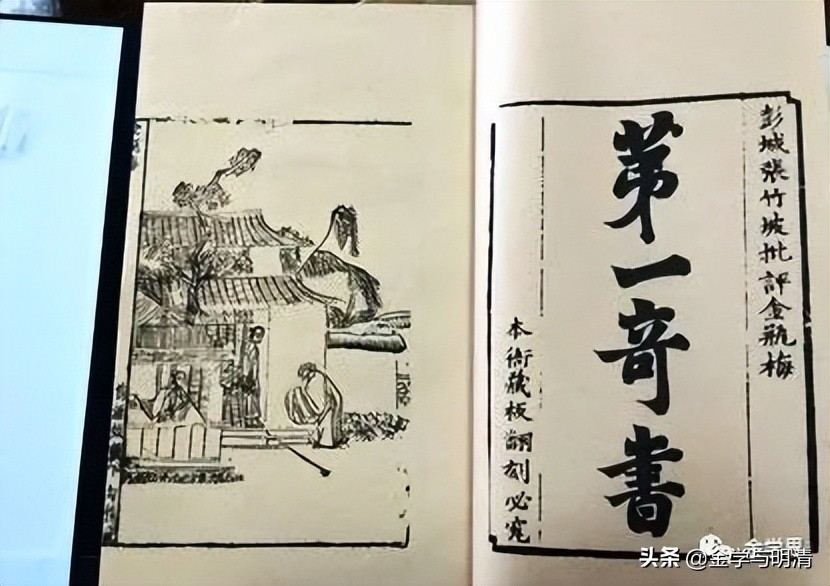 彭城張竹坡批評金瓶梅
第一奇書
本衙藏板翻刻必究
金学界
头条 @金学与明清